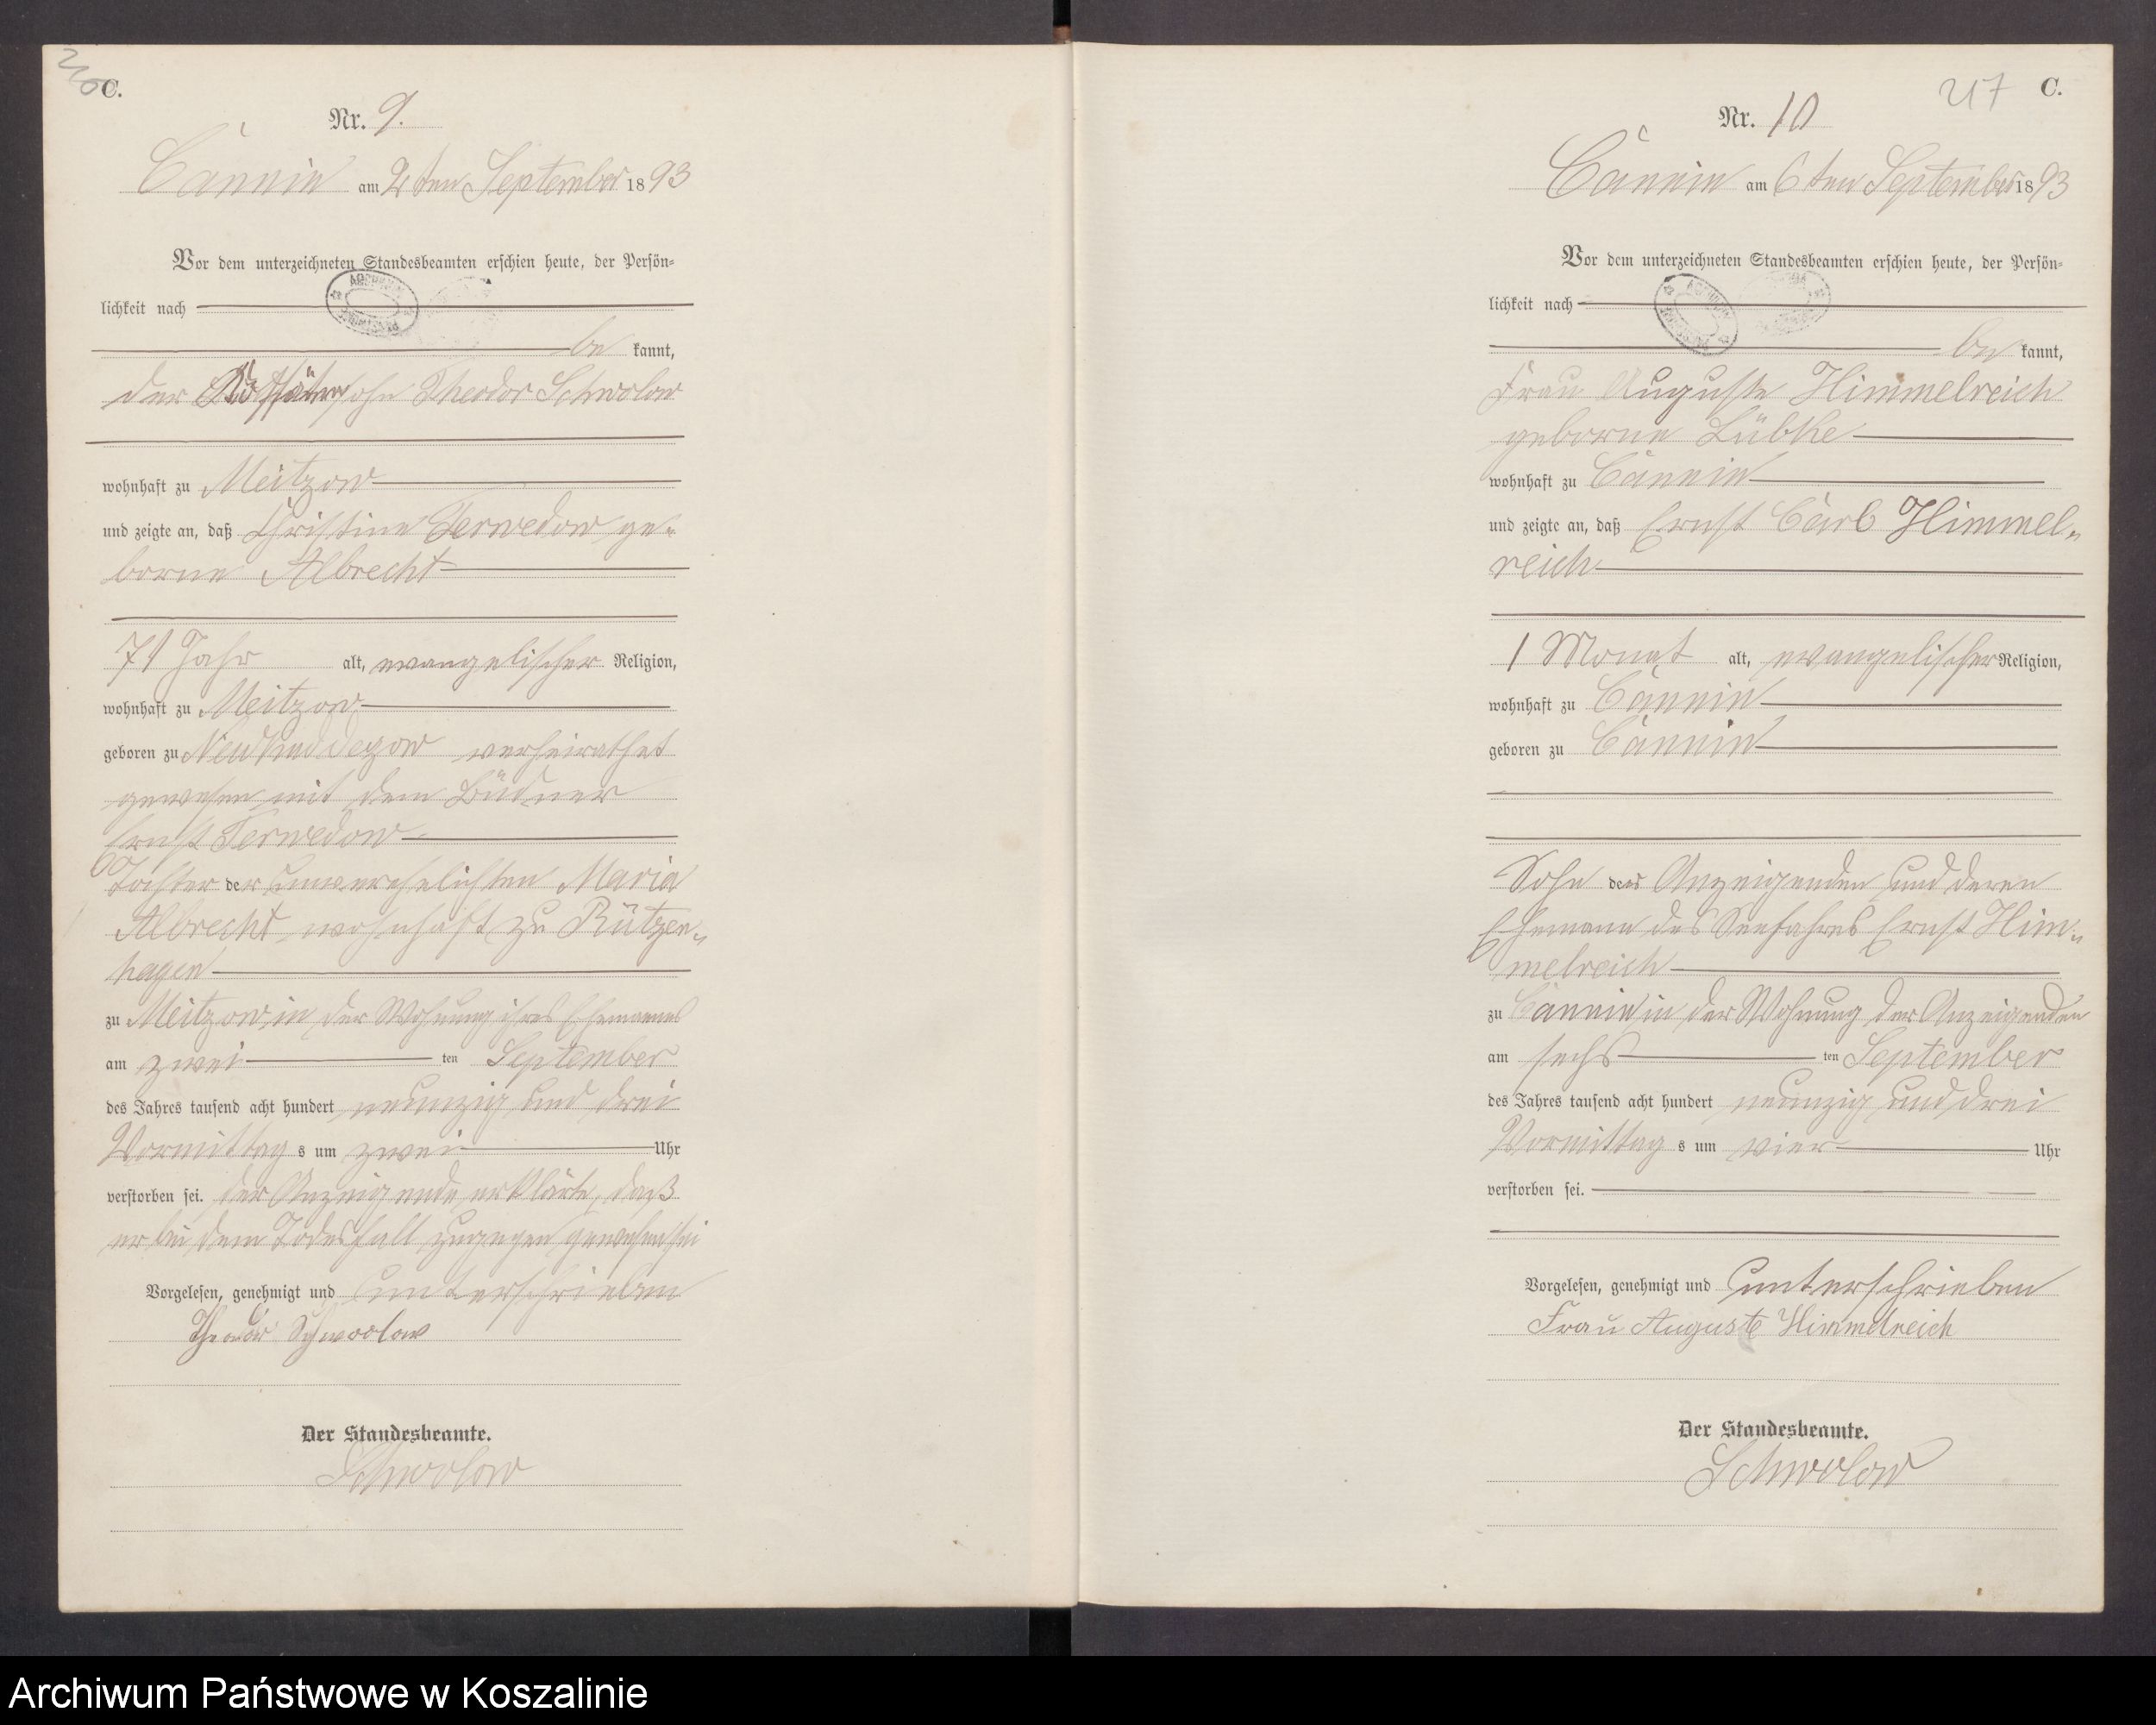 C.
Nr. 9.
Cannin am 2ten September 1893
Vor dem unterzeichneten Standesbeamten erschien heute, der Persön-
lichkeit nach
be kannt,
der Kossätensohn Theodor Schwolow
wohnhaft zu Meitzow
und zeigte an, daß Christine Ferwedow ge-
borne Albrecht
71 Jahr alt, evangelischer Religion,
wohnhaft zu Meitzow
geboren zu verheirathet
gewesen mit dem Büdner
Ernst Ferwedow
Tochter der unverehelichten Maria
Albrecht wohnhaft zu Rützen-
hagen
zu Meitzow in der Wohnung ihres Ehemannes
am zwei ten September
des Jahres tausend acht hundert neunzig und drei
Vormittag s um zwei Uhr
verstorben sei. der Anzeigende erklärte, daß
er bei dem Todesfall zugegen gewesen sei
Vorgelesen, genehmigt und unterschrieben
Theodor Schwolow
Der Standesbeamte.
Schwolow
217 C.
Nr. 10
Cannin am 6ten September 1893
Vor dem unterzeichneten Standesbeamten erschien heute, der Persön-
lichkeit nach
be kannt,
Frau Auguste Himmelreich
geborne Lübke
wohnhaft zu Cannin
und zeigte an, daß Ernst Carl Himmel-
reich
1 Monat alt, evangelischer Religion,
wohnhaft zu Cannin
geboren zu Cannin
Sohn der Anzeigenden und deren
Ehemann des Seefahrers Ernst Him-
melreich
zu Cannin in der Wohnung der Anzeigenden
am sechs ten September
des Jahres tausend acht hundert neunzig und drei
Vormittag s um vier Uhr
verstorben sei.
Vorgelesen, genehmigt und unterschrieben
Frau Auguste Himmelreich
Der Standesbeamte.
Schwolow
Archiwum Państwowe w Koszalinie